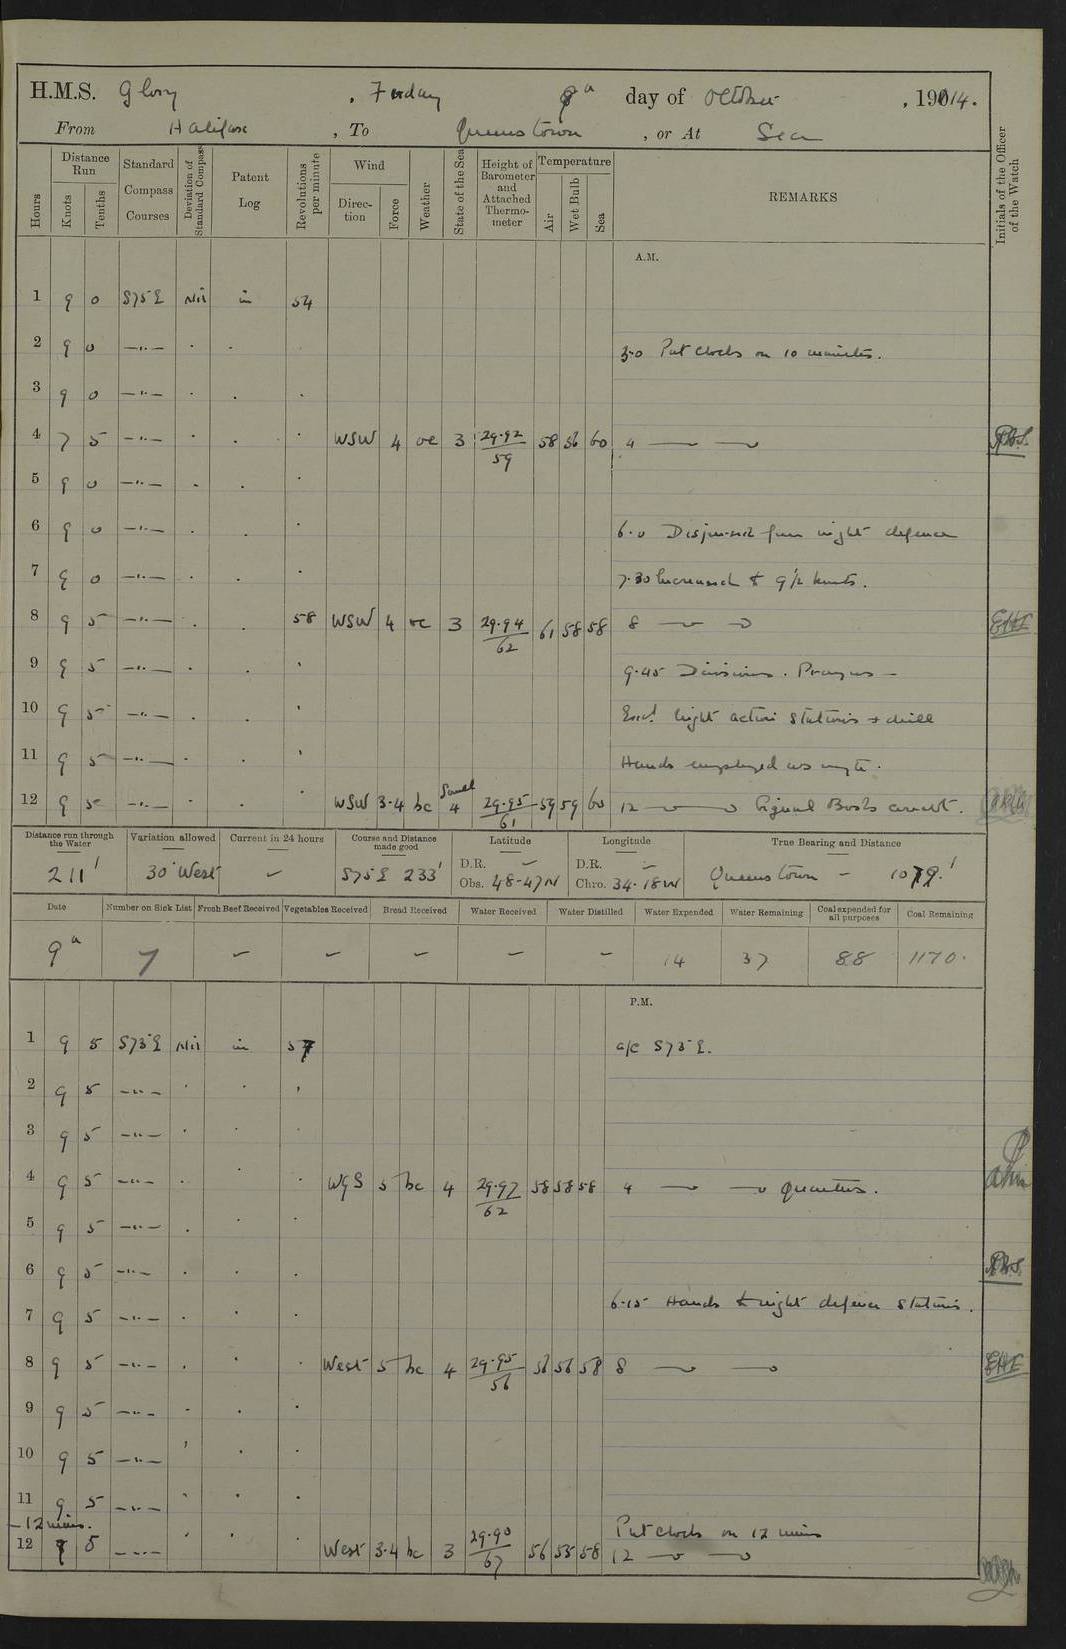 H.M.S. Glory , Friday 9th day of October , 1914.
From Halifax , To Queenstown , or At Sea
Hours
Distance Run
Knots
Tenths
Standard Compass Courses
Deviation of Standard Compass
Patent Log
Revolutions per minute
Wind
Direction
Force
Weather
State of the Sea
Height of Barometer and Attached Thermometer
Temperature
Air
Wet Bulb
Sea
REMARKS
Initials of the Officer of the Watch
A.M.
1 9 0 S75E Nil in 54
2 9 0 —"— . . 3.0 Put clocks on 10 minutes.
3 9 0 —"— . . .
4 7 5 —"— . . . WSW 4 oc 3 29.92/59 58 56 60 4
5 9 0 —"— . . .
6 9 0 —"— . . . 6.0 Dispersed from night defence
7 9 0 —"— . . . 7.30 Increased to 9½ knots.
8 9 5 —"— . . 58 WSW 4 oc 3 29.94/62 61 58 58 8 EHE
9 9 5 —"— . . . 9.45 Divisions. Prayers —
10 9 5 —"— . . . Exd. night action stations & drill
11 9 5 —"— . . . Hands employed as reqte.
12 9 5 —"— . . . WSW 3.4 bc Swell 4 29.95/61 59 59 60 12 Signal Books correct.
Distance run through the Water
211'
Variation allowed
30° West
Current in 24 hours
—
Course and Distance made good
S75E 233'
Latitude
D.R. —
Obs. 48-47N
Longitude
D.R. —
Chro. 34-18W
True Bearing and Distance
Queenstown — 1079'
Date Number on Sick List Fresh Beef Received Vegetables Received Bread Received Water Received Water Distilled Water Expended Water Remaining Coal expended for all purposes Coal Remaining
9th 7 — — — — — 14 37 88 1170.
P.M.
1 9 5 S73E Nil in 57 a/c S73E.
2 9 5 —"— . . .
3 9 5 —"— . . .
4 9 5 —"— . . . WyS 5 bc 4 29.97/62 58 58 58 4 Quarters.
5 9 5 —"— . . .
6 9 5 —"— . . .
7 9 5 —"— . . . 6.15 Hands to night defence stations.
8 9 5 —"— . . . West 5 bc 4 29.95/56 56 56 58 8 EHE
9 9 5 —"— . . .
10 9 5 —"— . . .
11 9 5 —"— . . .
— 12 mins. Put clocks on 12 mins
12 7 5 —"— . . . West 3.4 bc 3 29.90/67 56 55 58 12